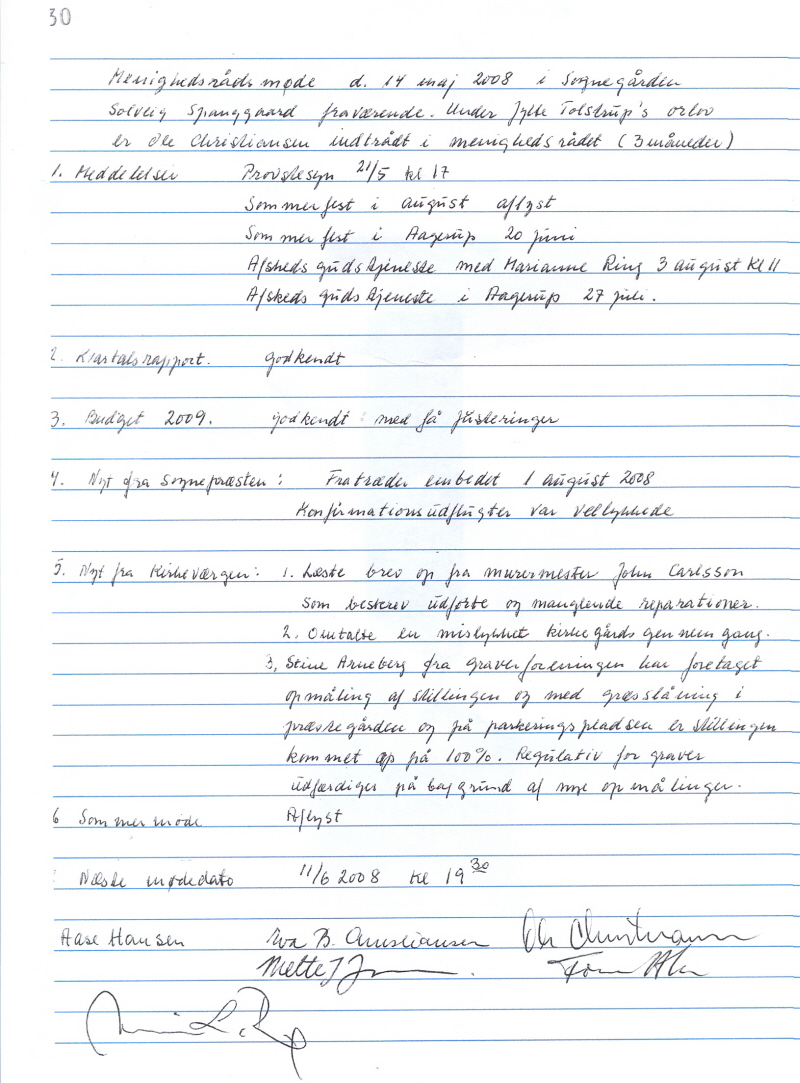 30
Menighedsråds møde d. 14 maj 2008 i Sognegården
Solveig Spanggaard fraværende. Under Jytte Tolstrup's orlov
er Ole Christiansen indtrådt i menighedsrådet (3 måneder)
1. Meddelelser Provstesyn 21/5 kl 17
Sommerfest i august aflyst
Sommerfest i Aagerup 20 juni
Afskeds gudstjeneste med Marianne Ring 3 august kl 11
Afskeds gudstjeneste i Aagerup 27 juli.
2. Kvartalsrapport. godkendt
3. Budget 2009. godkendt med få justeringer
4. Nyt fra Sognepræsten: Fratræder embedet 1 august 2008
Konfirmationsudflugter var vellykkede
5. Nyt fra Kirkeværgen: 1. Læste brev op fra murermester John Carlsson
som beskrev udførte og manglende reparationer.
2. Omtalte en mislykket kirkegårds gennemgang.
3. Stine Arneberg fra graverforeningen har foretaget
opmåling af stillingen og med græsslåning i
præstegården og på parkeringspladsen er stillingen
kommet op på 100%. Regulativ for graver
udfærdiges på baggrund af nye opmålinger.
6 Sommermøde Aflyst
Næste mødedato 11/6 2008 kl 19 30
Aase Hansen Eva B. Christiansen Ole Christiansen
Mette J